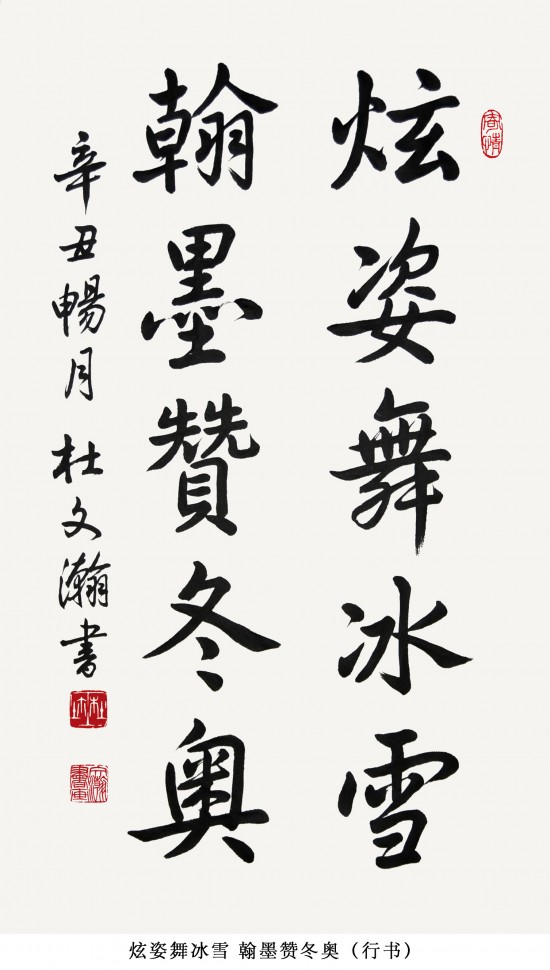 炫姿舞冰雪
翰墨贊冬奥
辛丑暢月 杜文瀚書
炫姿舞冰雪 翰墨赞冬奥（行书）